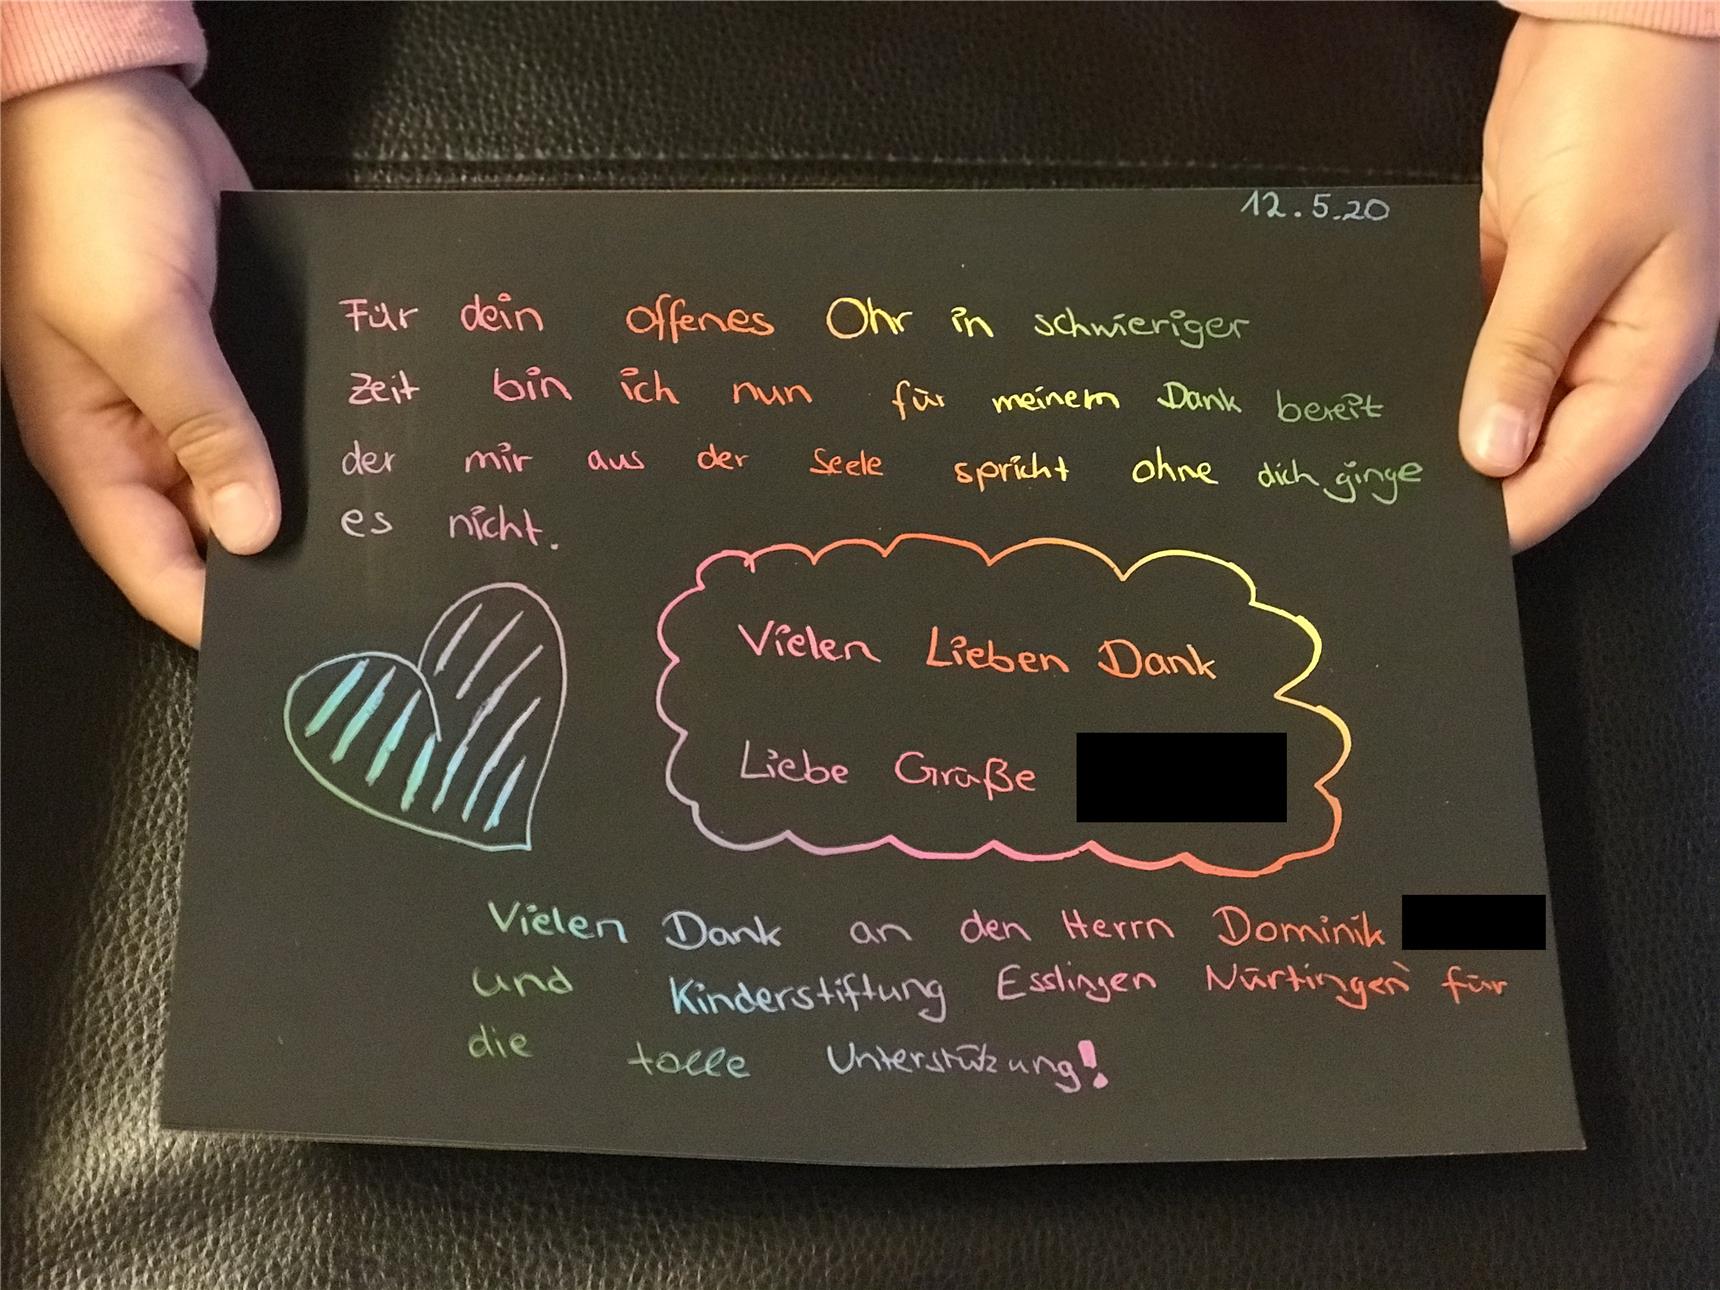 12.5.20
Für dein offenes Ohr in schwieriger
Zeit bin ich nun für meinem Dank bereit
der mir aus der Seele spricht ohne dich ginge
es nicht.
Vielen Lieben Dank
Liebe Grüße
Vielen Dank an den Herrn Dominik
und Kinderstiftung Esslingen Nürtingen für
die tolle Unterstützung!